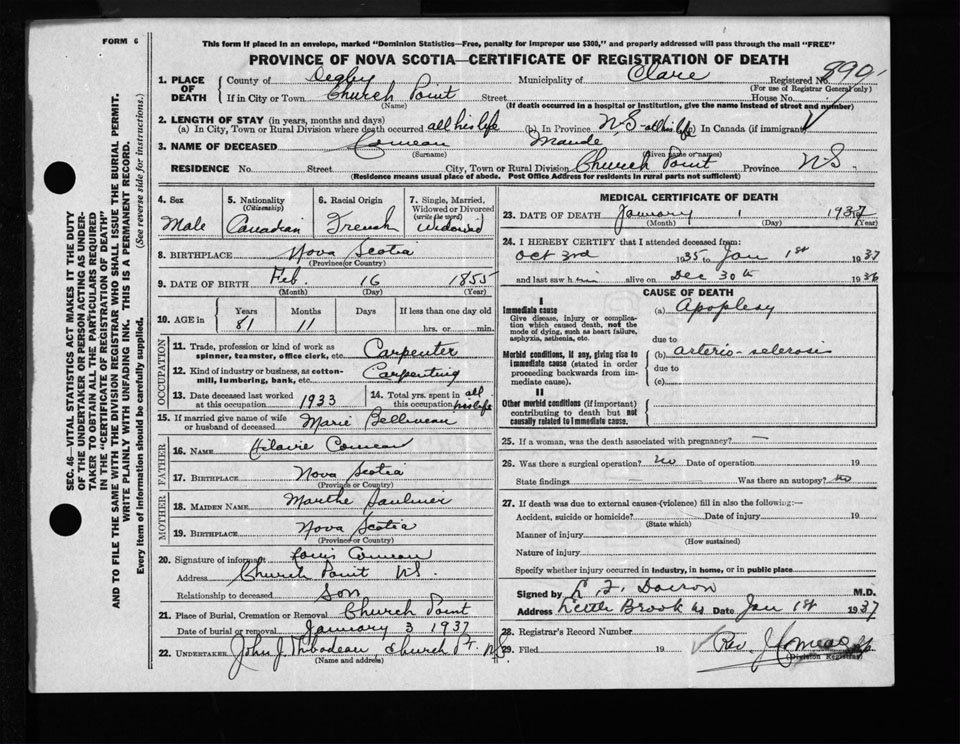 FORM 6
This form if placed in an envelope, marked "Dominion Statistics—Free, penalty for improper use $300," and properly addressed will pass through the mail "FREE"
PROVINCE OF NOVA SCOTIA—CERTIFICATE OF REGISTRATION OF DEATH
1. PLACE OF DEATH
County of Digby Municipality of Clare Registered No. 890
(For use of Registrar General only)
If in City or Town Church Point Street House No.
(Name) (If death occurred in a hospital or institution, give the name instead of street and number)
2. LENGTH OF STAY (in years, months and days)
(a) In City, Town or Rural Division where death occurred all his life (b) In Province N S - all his life (c) In Canada (if immigrant)
3. NAME OF DECEASED Comeau Maude
(Surname) (Given name or names)
RESIDENCE No. Street City, Town or Rural Division Church Point Province N S.
(Residence means usual place of abode. Post Office Address for residents in rural parts not sufficient)
4. Sex Male
5. Nationality (Citizenship) Canadian
6. Racial Origin French
7. Single, Married, Widowed or Divorced (write the word) Widowed
8. BIRTHPLACE Nova Scotia
(Province or Country)
9. DATE OF BIRTH Feb. 16 1855
(Month) (Day) (Year)
10. AGE in Years Months Days If less than one day old
81 11 hrs. or min.
OCCUPATION
11. Trade, profession or kind of work as spinner, teamster, office clerk, etc. Carpenter
12. Kind of industry or business, as cotton-mill, lumbering, bank, etc. Carpentring
13. Date deceased last worked at this occupation 1933
14. Total yrs. spent in this occupation all his life
15. If married give name of wife or husband of deceased Marie Belliveau
FATHER
16. NAME Hilarie Comeau
17. BIRTHPLACE Nova Scotia
(Province or Country)
MOTHER
18. MAIDEN NAME Marthe Saulnier
19. BIRTHPLACE Nova Scotia
(Province or Country)
20. Signature of informant Louis Comeau
Address Church Point N.S.
Relationship to deceased Son
21. Place of Burial, Cremation or Removal Church Point
Date of burial or removal January 3 1937
22. UNDERTAKER John J Thibodeau Church Pt. N S
(Name and address)
MEDICAL CERTIFICATE OF DEATH
23. DATE OF DEATH January 1 1937
(Month) (Day) (Year)
24. I HEREBY CERTIFY that I attended deceased from:
Oct 3rd 1935 to Jan 1st 1937
and last saw him alive on Dec 30th 1936
CAUSE OF DEATH
I
Immediate cause
Give disease, injury or complication which caused death, not the mode of dying, such as heart failure, asphyxia, asthenia, etc.
(a) Apoplexy
due to
Morbid conditions, if any, giving rise to immediate cause (stated in order proceeding backwards from immediate cause).
(b) arterio-sclerosis
due to
(c)
II
Other morbid conditions (if important) contributing to death but not causally related to immediate cause.
25. If a woman, was the death associated with pregnancy? —
26. Was there a surgical operation? no Date of operation 19
State findings Was there an autopsy? no
27. If death was due to external causes (violence) fill in also the following:—
Accident, suicide or homicide? Date of injury 19
(State which)
Manner of injury
(How sustained)
Nature of injury
Specify whether injury occurred in industry, in home, or in public place
Signed by M.D.
Address Little Brook Date Jan 1st 1937
28. Registrar's Record Number
29. Filed 19 Rev. J Comeau
(Division Registrar)
SEC. 46—VITAL STATISTICS ACT MAKES IT THE DUTY
OF THE UNDERTAKER OR PERSON ACTING AS UNDER-
TAKER TO OBTAIN ALL THE PARTICULARS REQUIRED
IN THE "CERTIFICATE OF REGISTRATION OF DEATH"
AND TO FILE THE SAME WITH THE DIVISION REGISTRAR WHO SHALL ISSUE THE BURIAL PERMIT.
WRITE PLAINLY WITH UNFADING INK. THIS IS A PERMANENT RECORD.
Every item of information should be carefully supplied. (See reverse side for instructions.)